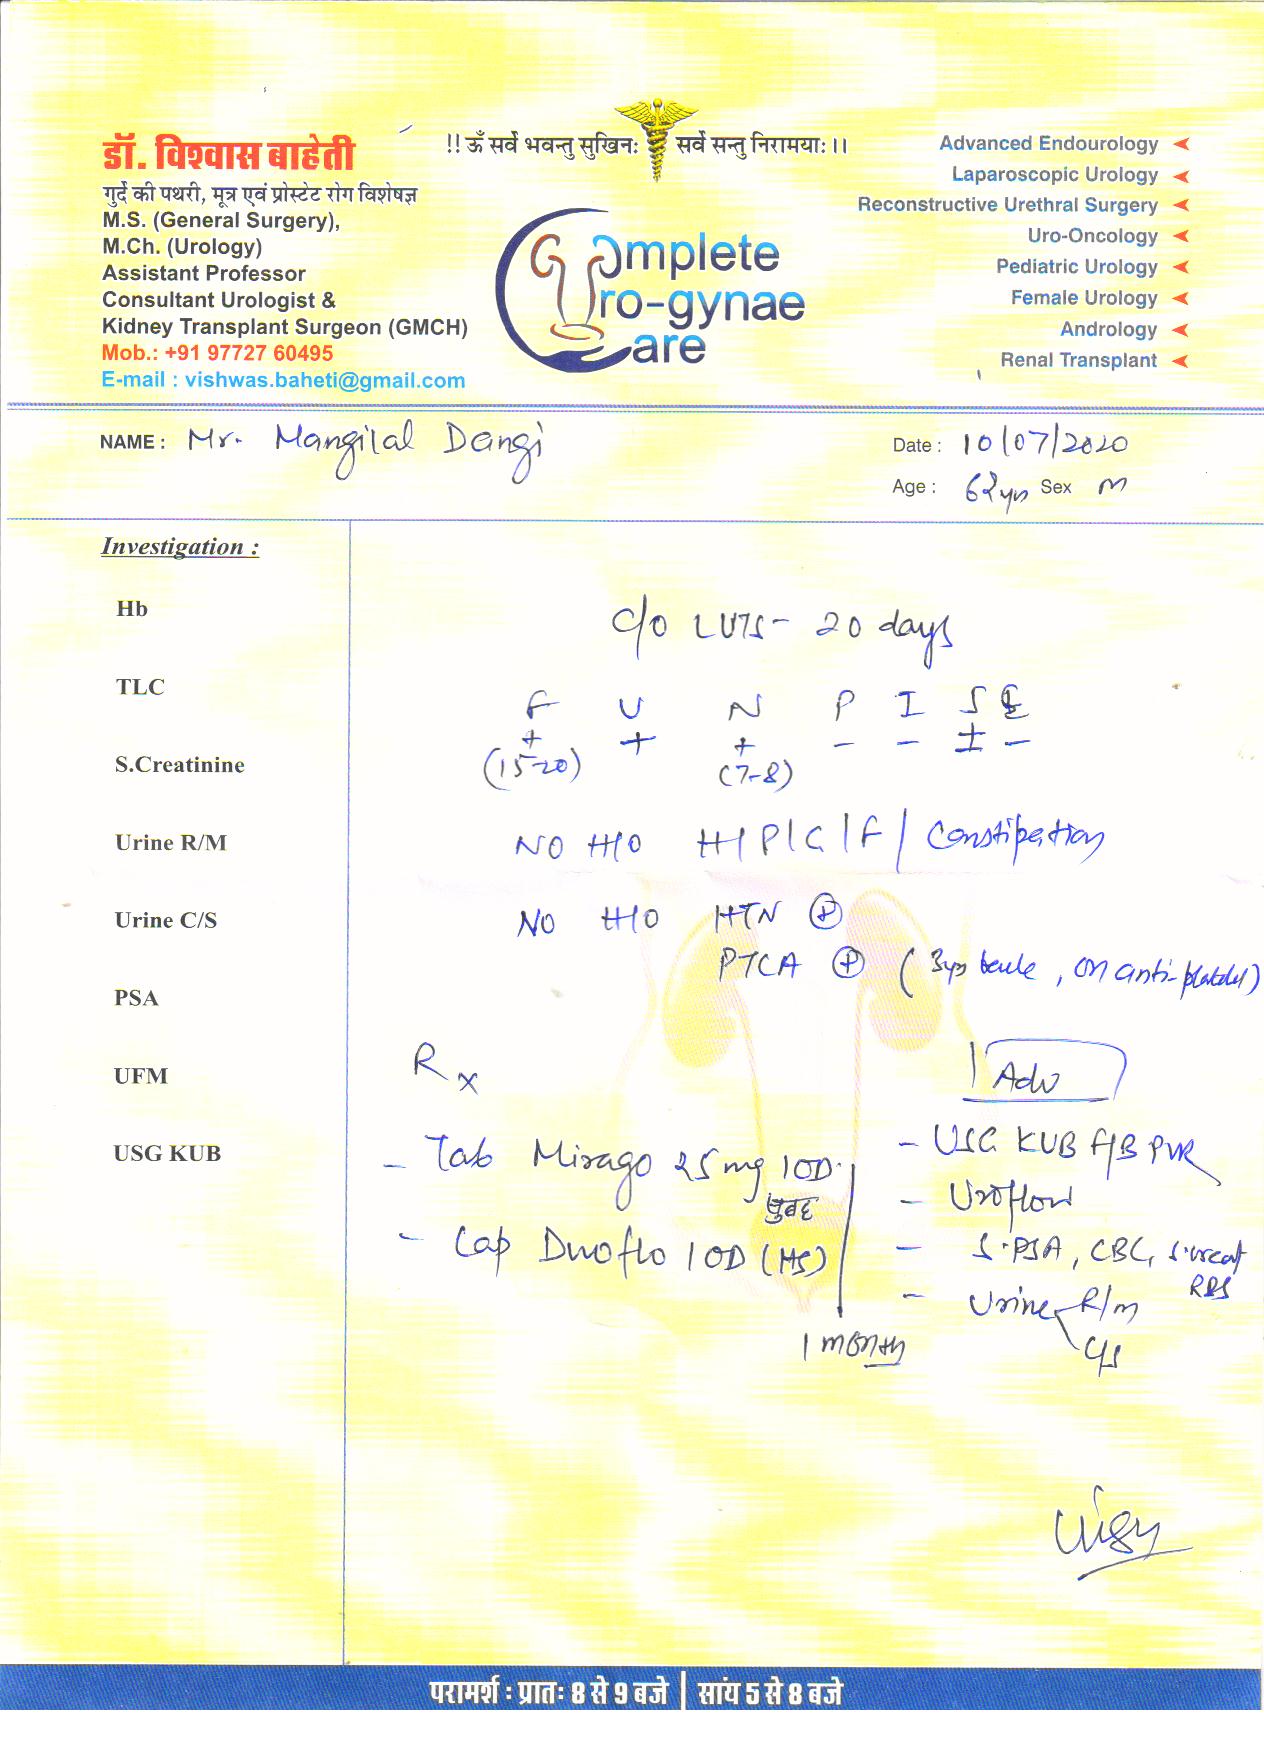 डॉ. विश्वास बाहेती
गुर्दे की पथरी, मूत्र एवं प्रोस्टेट रोग विशेषज्ञ
M.S. (General Surgery),
M.Ch. (Urology)
Assistant Professor
Consultant Urologist &
Kidney Transplant Surgeon (GMCH)
Mob.: +91 97727 60495
E-mail : vishwas.baheti@gmail.com
!! ॐ सर्वे भवन्तु सुखिनः सर्वे सन्तु निरामयाः ।।
Complete
Uro-gynae
Care
Advanced Endourology
Laparoscopic Urology
Reconstructive Urethral Surgery
Uro-Oncology
Pediatric Urology
Female Urology
Andrology
Renal Transplant
NAME : Mr. Mangilal Dangi
Date : 10/07/2020
Age : 62 yrs Sex M
Investigation :
Hb
TLC
S.Creatinine
Urine R/M
Urine C/S
PSA
UFM
USG KUB
C/O LUTS - 20 days
F U N P I S E
+ + + - - ± -
(15-20) (7-8)
NO H/O H/P/C/F/ Constipation
NO H/O HTN (P)
PTCA (P) ( 3yrs , on anti-platelet)
Rx
- Tab Mirago 25 mg 1OD
सुबह
- Cap Duoflo 1 OD (HS)
1 month
Adv
- USG KUB F/B PVR
- Uroflow
- S.PSA, CBC, S.creat
RBS
- Urine R/m
C/S
परामर्श : प्रातः 8 से 9 बजे | सांय 5 से 8 बजे